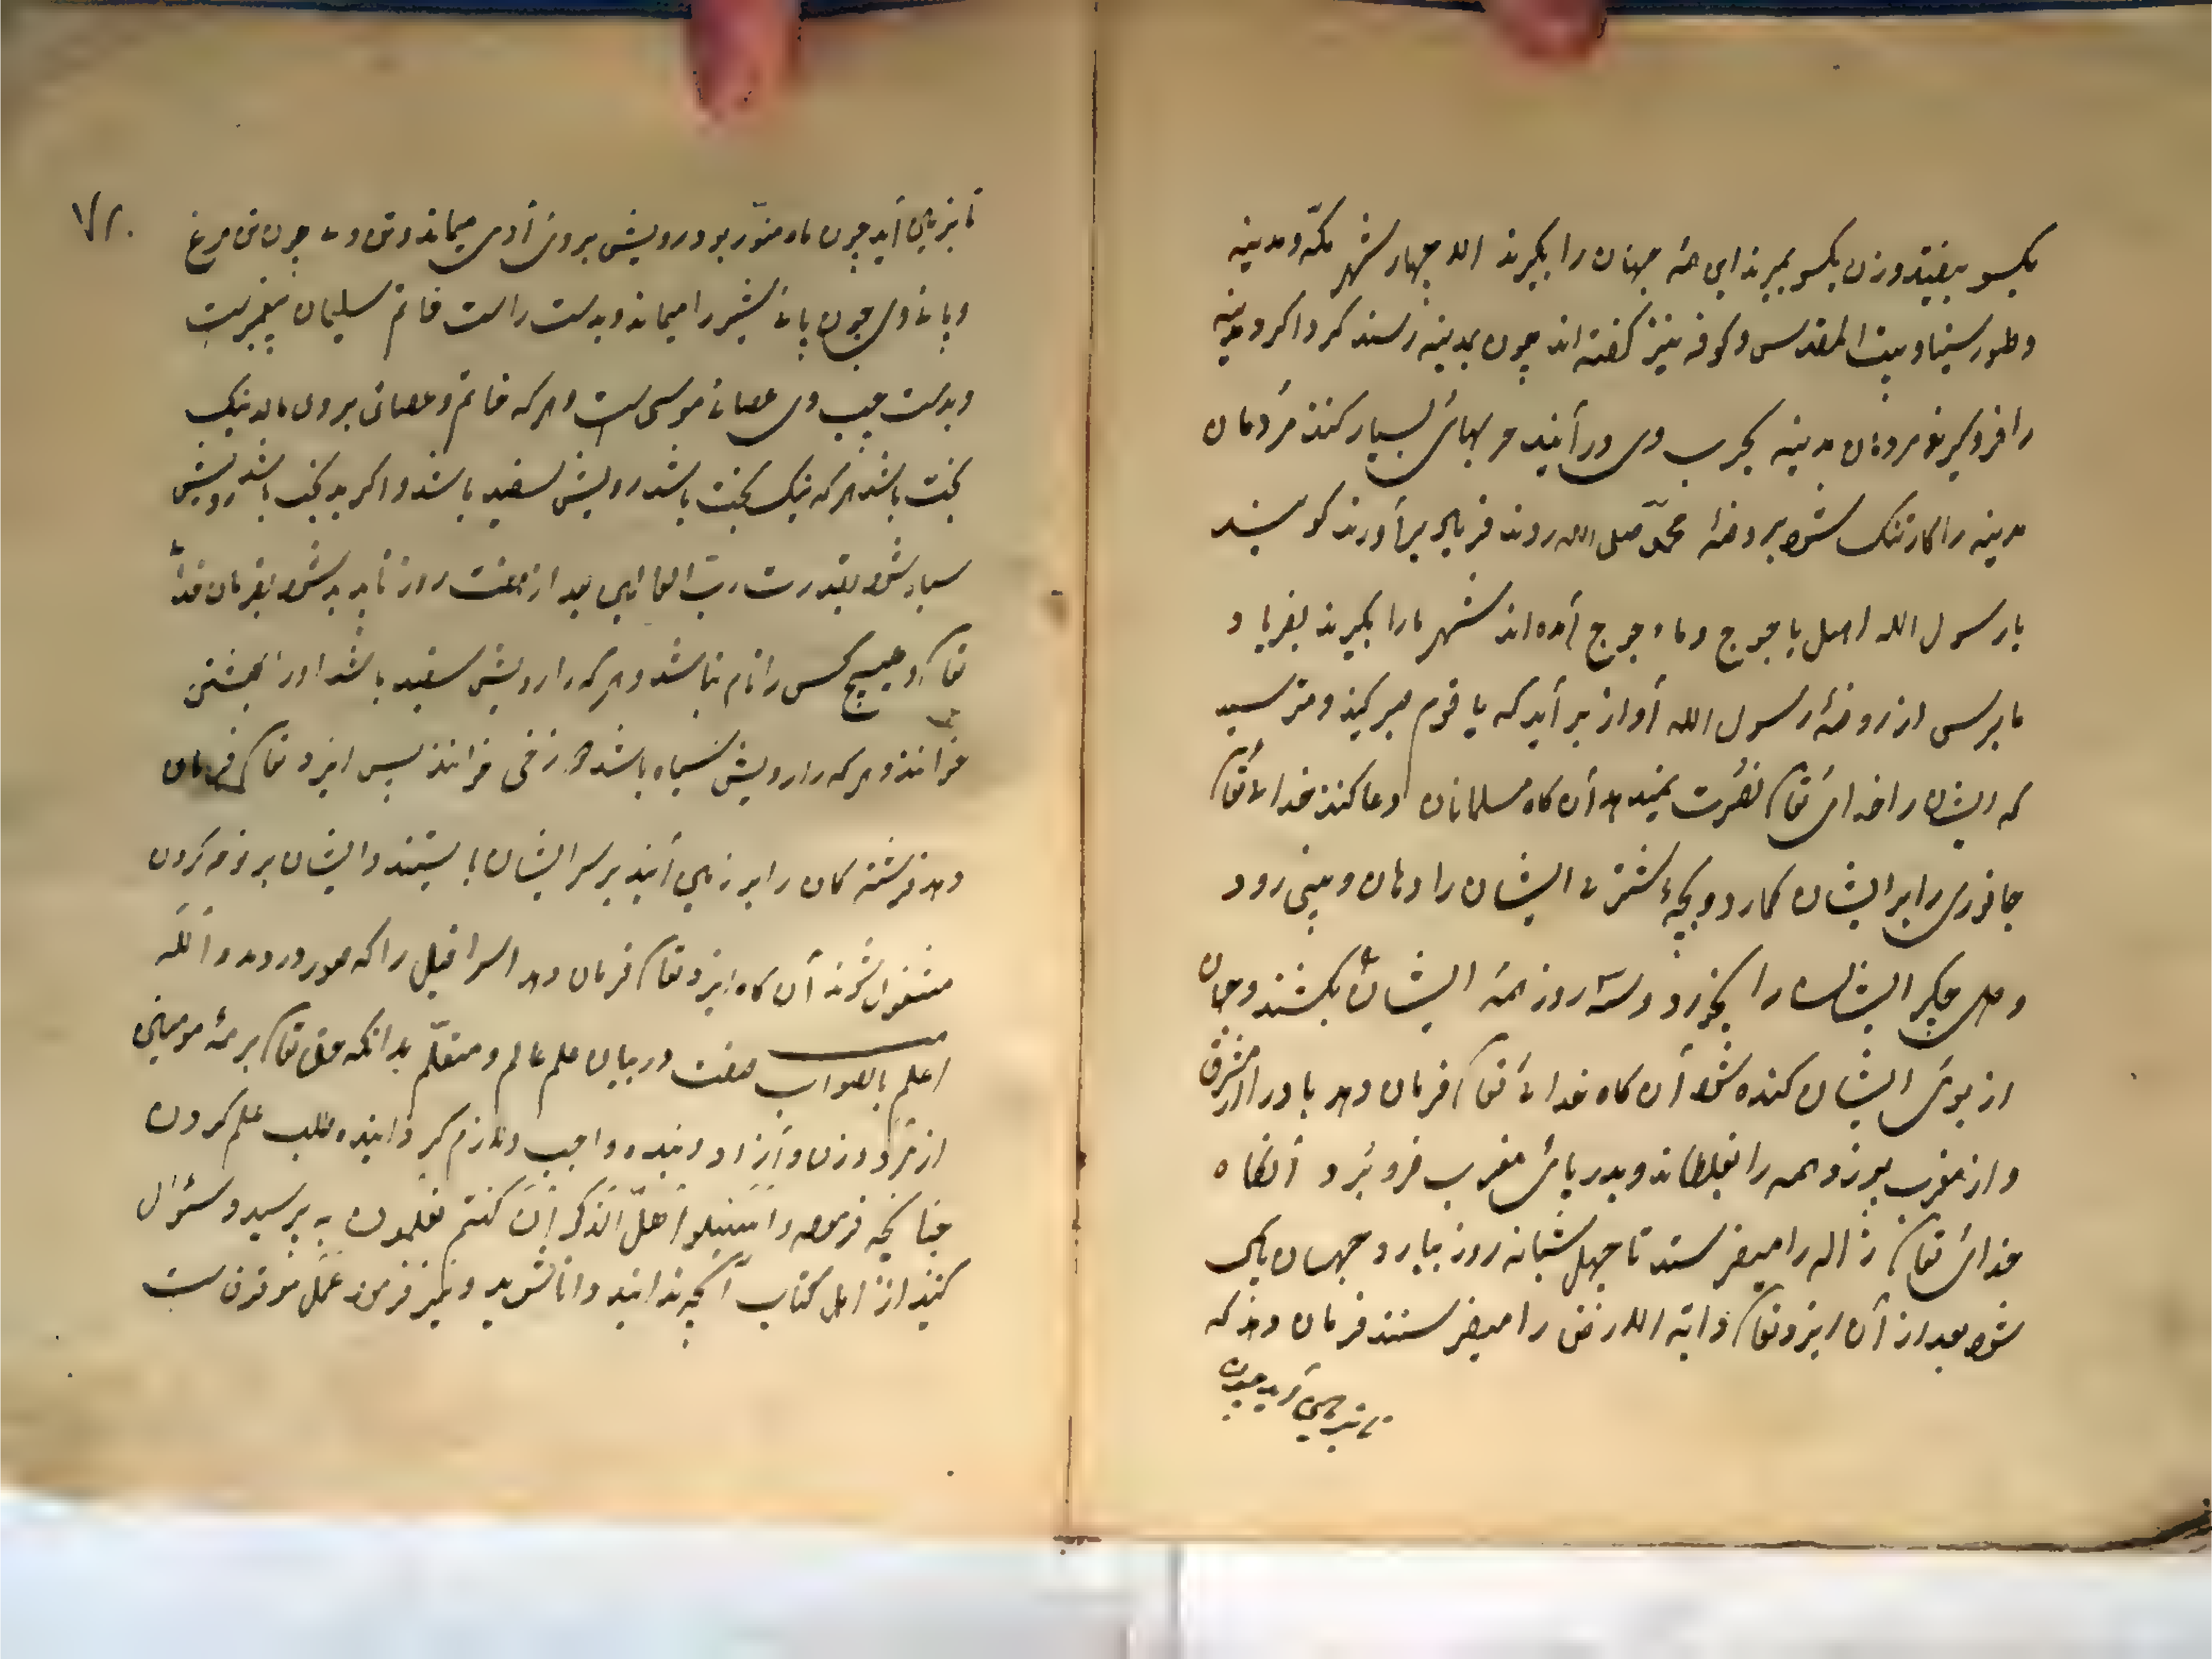 یکسو بیفتد و زن یکسو بمیرند این همه جهان را بگیرند الا چهار شهر مکّه و مدینه
و طور سینا و بیت المقدس و کوفه نیز گفته اند چون بمدینه رسند گرداگرد مدینه
را فروگیرند مردمان مدینه بحرب وی درآیند حربهای بسیار کنند مردمان
مدینه را کار تنک شود بروضهٔ محمّد صلی الله روند فریاد برآورند گویند
یا رسول الله اهل یاجوج و ماجوج آمده اند شهر ما را بگیرند بفریاد
ما برس از روضهٔ رسول الله آواز برآید که یا قوم صبر کنید و مترسید
که ایشان را خدای تعا نصرت نمیدهد آن گاه مسلمانان دعا کنند خدای تعا
جانوری را بر ایشان کمارد و بچهٔ شتر ایشان را دهان و بینی رود
و دل و جگر ایشان را بخورد و سه روز همه ایشان بکشند و جهان
از بوی ایشان گنده شود آن گاه خدای تعا فرمان دهد باد را از مشرق
و از مغرب بوزد و همه را بغلطاند و بدریای مغرب فرو برد آنگاه
خدای تعا ژاله را میفرستد تا چهل شبانه روز ببارد و جهان پاک
شود بعد از آن ایزد تعا دابة الارض را میفرستند فرمان دهد که
تا بزمین آید چون
۷۲
تا بزمین آید چون ماه منوّر بود رویش بروی آدمی میماند و تن وی چون تن مرغ
و پای وی چون پای شیر را میماند و بدست راست خاتم سلیمان پیغمبرست
و بدست چپ وی عصای موسی ست و هر که خاتم و عصای بر وی مالد نیک
بخت باشد هر که نیک بخت باشد رویش سفید باشد و اگر بد بخت باشد رویش
سیاه شود بقدرت رب العالمین بعد از هفت روز ناپدید شود بفرمان خدا
تعا و هیچ کس را نام نباشد و هر که را رویش سفید باشد او را بهشتی
خوانند و هر که را رویش سیاه باشد دوزخی خوانند پس ایزد تعا فرمان
دهد فرشته کان را بر زمین آیند بر سر ایشان بایستند و ایشان بر نوحه کردن
مشغول شوند آن گاه ایزد تعا فرمان دهد اسرافیل را که صور در دمد والله
اعلم بالصواب صفت در بیان علم عالم و متعلّم بدانکه حق تعا بر همه مومنین
از مرد و زن و آزاد و بنده واجب و لازم گردانیده طلب علم کردن
چنانچه فرموده فاسئلوا اهل الذکر ان کنتم تعلمون به پرسید و سئوال
کنید از اهل کتاب آنچه ندانید دانا شوید و نیز فرمود عمل موقوف ست